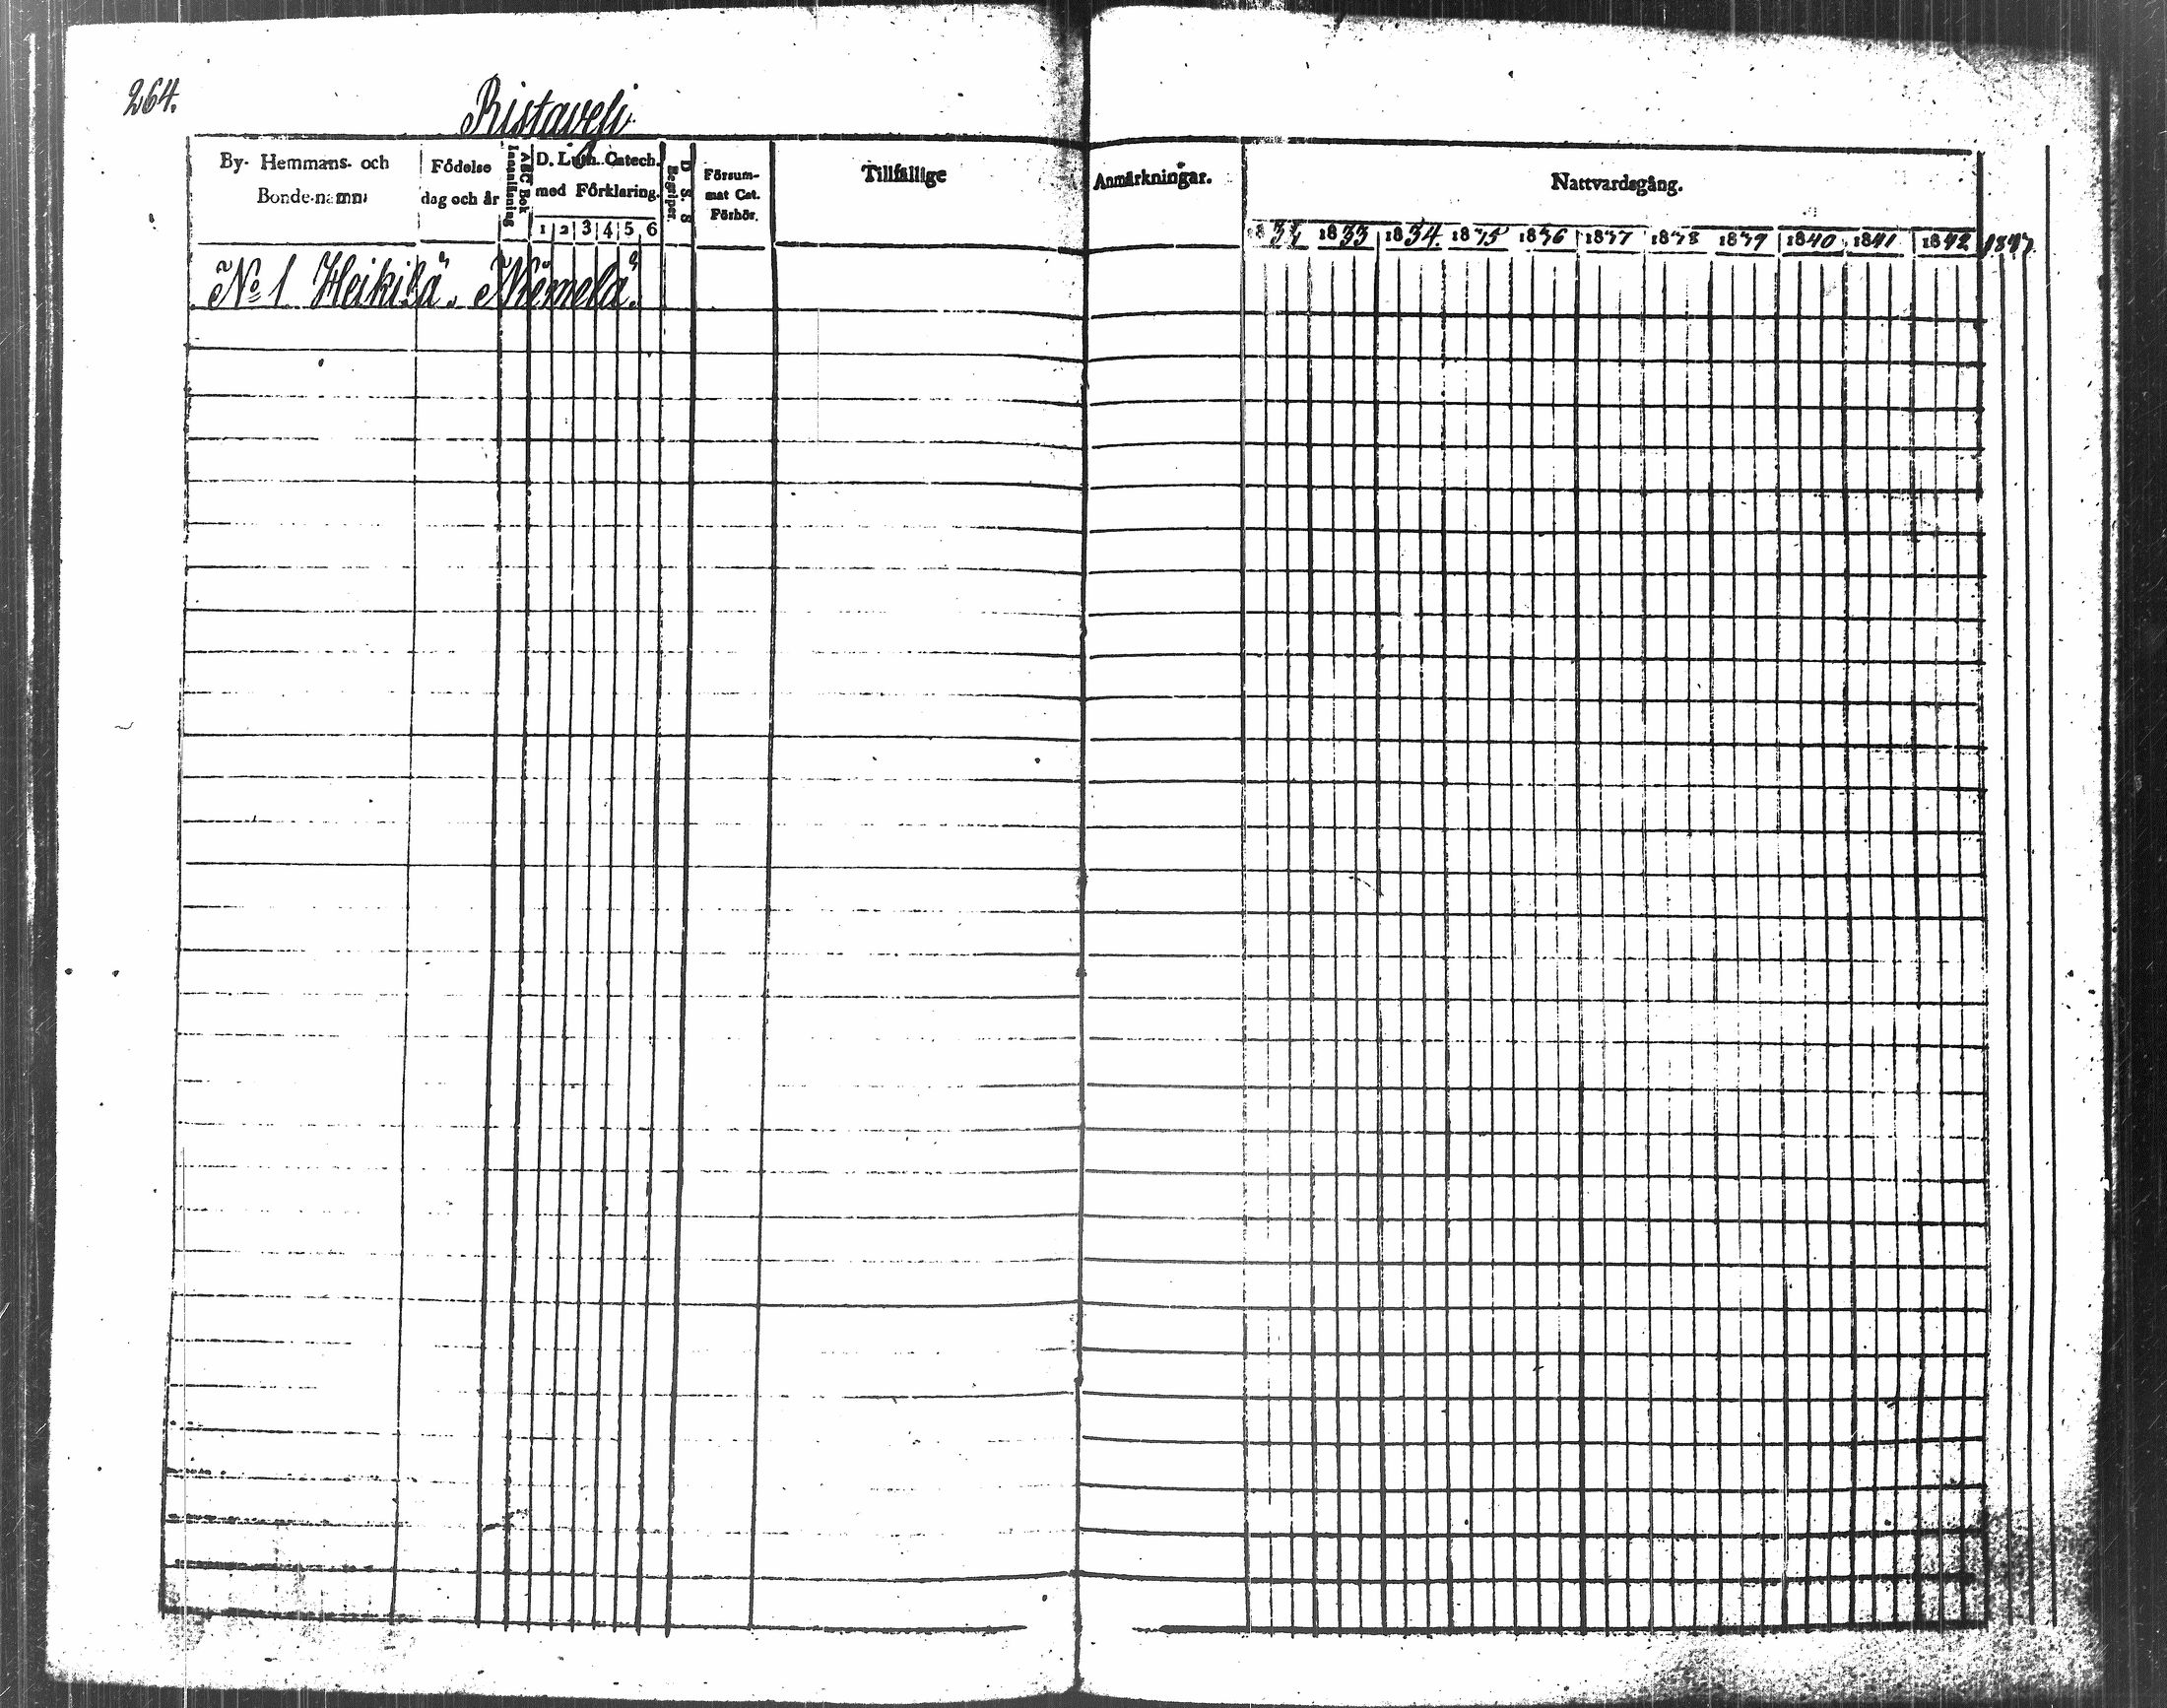 264.
Ristavesi
By- Hemmans- och Bonde-namn
Födelse dag och år
ABC Bok Innanläsning
D. Luth. Catech. med Förklaring.
1 2 3 4 5 6
D. S. S Begriper.
Försum- mat Cat. Förhör.
Tillfällige Anmärkningar.
Nattvardsgång.
1833 1834 1835 1836 1837 1838 1839 1840 1841 1842
No 1 Heikilä. Niemelä.